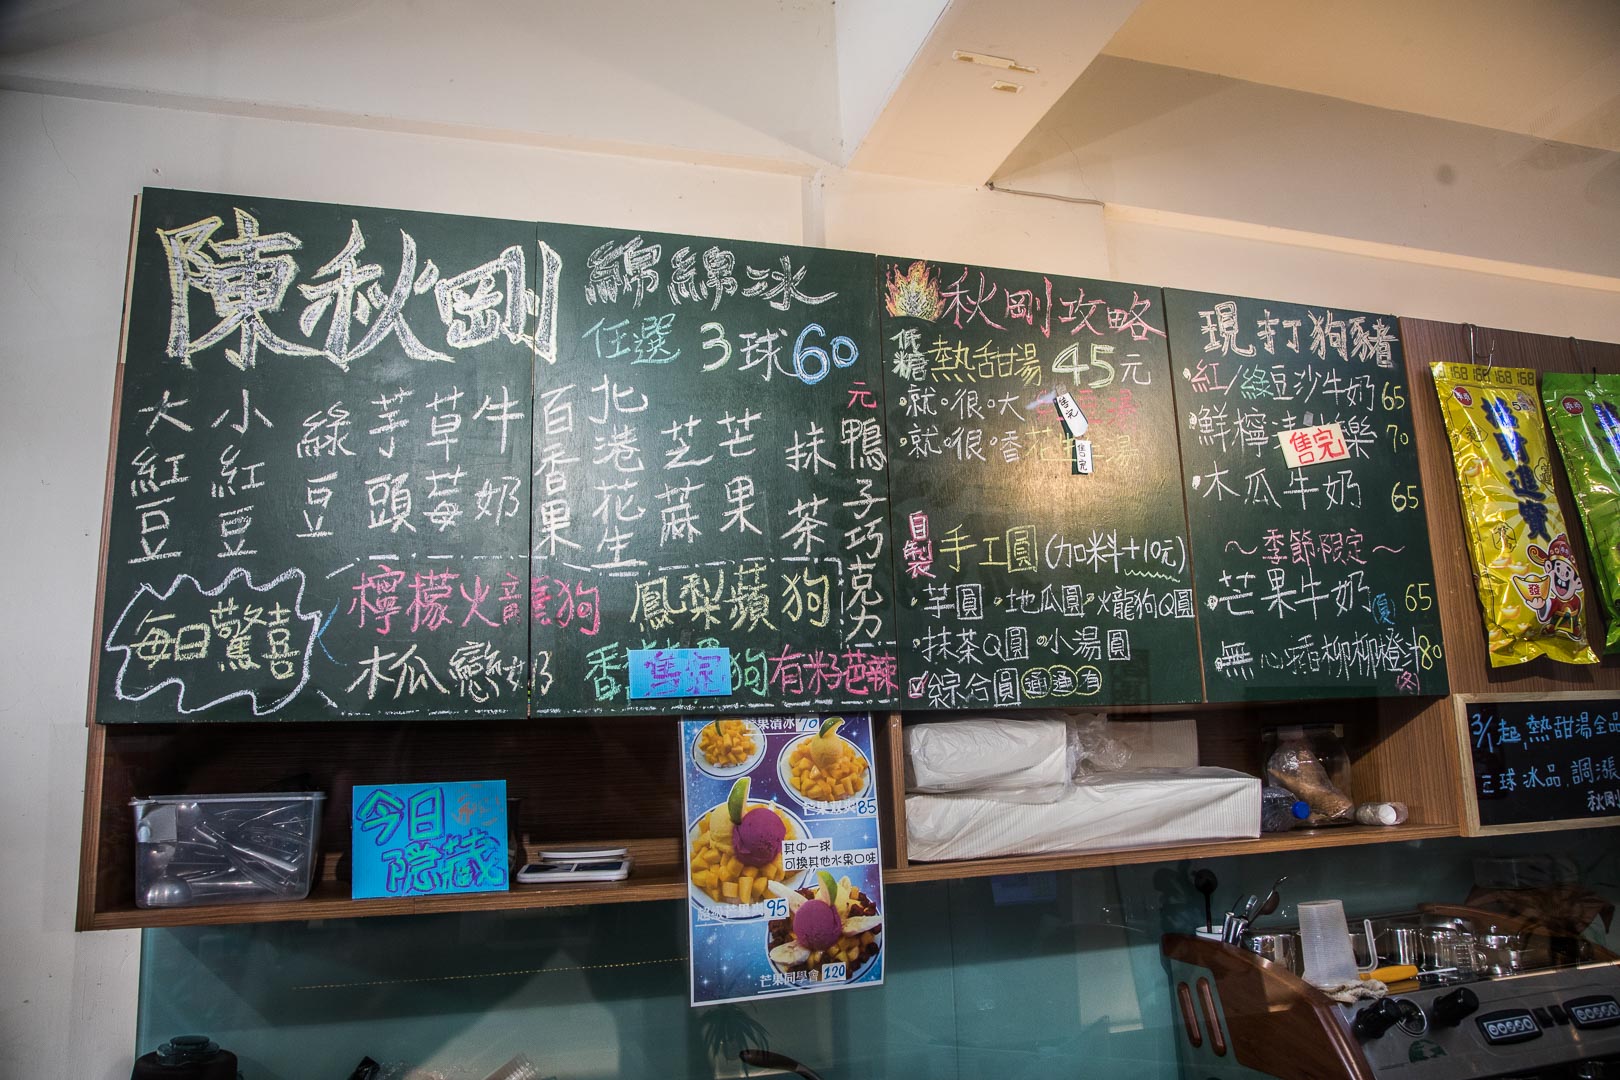 陳秋剛
大紅豆
小紅豆
綠豆
芋頭
草莓
牛奶
每日驚喜
檸檬火龍狗
木瓜戀奶
綿綿冰
任選 3球60元
百香果
北港花生
芝蔴
芒果
抹茶
鴨子巧克力
鳳梨蘋狗
售完
狗
有夠芭辣
秋剛攻略
低糖 熱甜湯 45元
就很大 豆湯
售完
就很香 花生 湯
售完
自製 手工圓 (加料+10元)
芋圓 地瓜圓 火龍狗Q圓
抹茶Q圓 小湯圓
綜合圓 通通有
現打狗豬
紅/綠豆沙牛奶 65
鮮檸 樂 70
售完
木瓜牛奶 65
~季節限定~
芒果牛奶(夏) 65
無心插柳柳橙汁(冬) 80
168 168 168 168
進寶
發
3/1起,熱甜湯全品
三球冰品,調漲
秋剛
今日隱藏
芒果清冰 70
85
其中一球
可換其他水果口味
95
芒果同學會 120